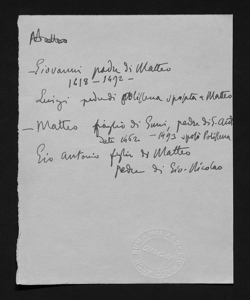 Giovanni padre di Matteo
1618 - 1692 -
Luigi padre di Polissena sposata a Matteo
- Matteo figlio di Giovi, padre di G. Ant
1662 - 1793 sposò Polissena
Gio Antonio figlio di Matteo
padre di Gio-Nicolao